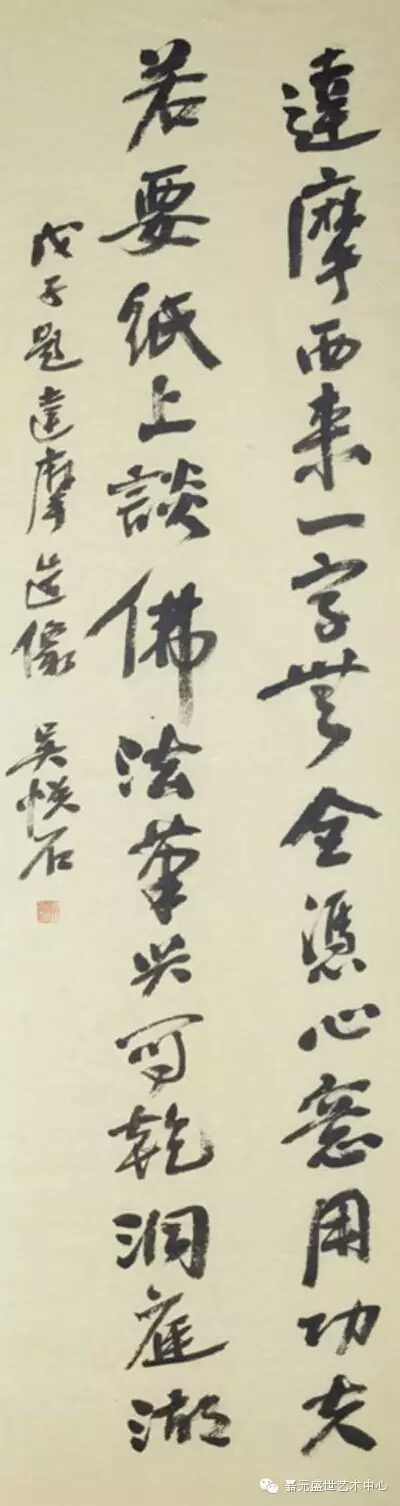 達摩西来一字無全憑心意用功夫
若要紙上談佛法筆尖写乾洞庭湖
戊子題達摩造像 吳悅石
嘉元盛世艺术中心